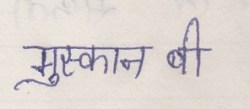 मुस्कान बी